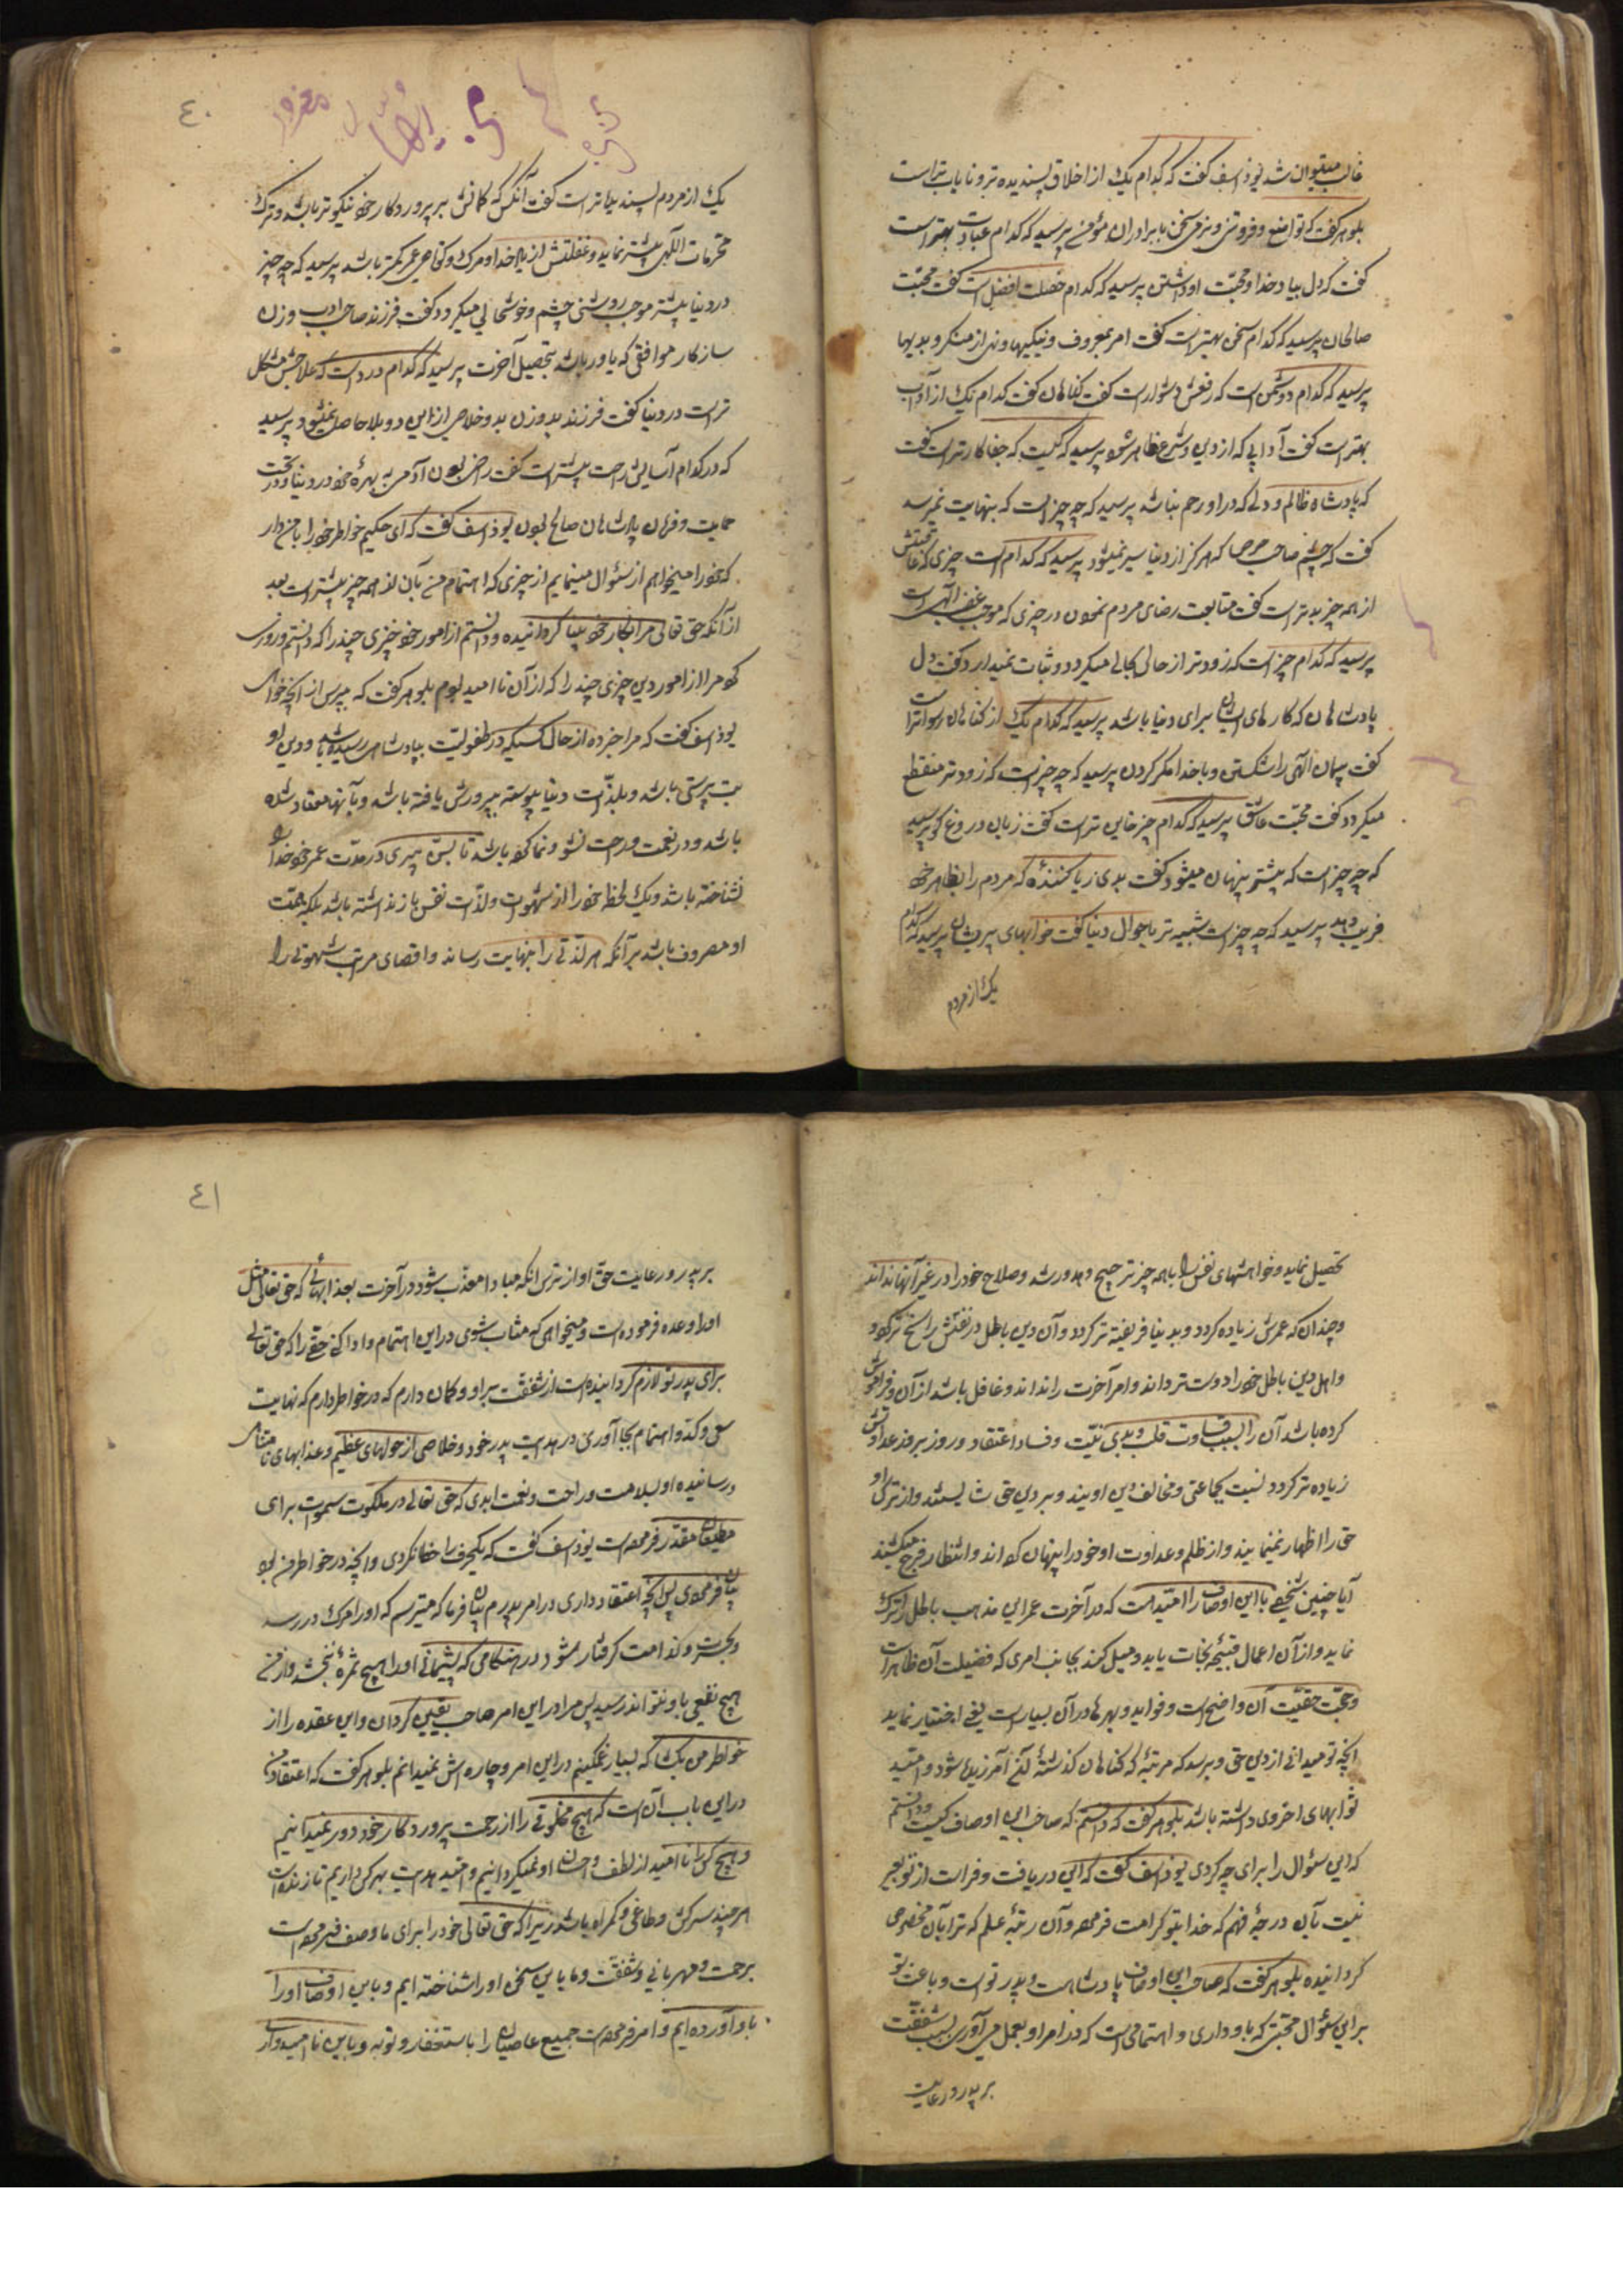 غالب میتوان شد یوذاسف گفت که کدام یک از اخلاق پسندیده تر و نایاب تر است
بلوهر گفت که تواضع و فروتنی و نرمی سخن با برادران مؤمن پرسید که کدام عبادت بهتر است
گفت که دل بیاد خدا و محبّت او داشتن پرسید که کدام خصلت افضل است گفت محبّت
صالحان پرسید که کدام سخن بهتر است گفت امر بمعروف و نیکیها و نهی از منکر و بدیها
پرسید که کدام دشمن است که دفعش دشوار است گفت گناهان گفت کدام یک از آداب
بهتر است گفت آدابی که از دین و شرع ظاهر شود پرسید که کیست که جفاکارتر است گفت
که پادشاه ظالم و دلی که در او رحم نباشد پرسید که چه چیز است که بنهایت نمیرسد
گفت که چشم صاحب حرص که هرگز از دنیا سیر نمیشود پرسید که کدام است چیزی که عاقبتش
از همه چیز بدتر است گفت متابعت رضای مردم نمودن در چیزی که موجب غضب الٓهی است
پرسید که کدام چیز است که زودتر از حالی بحالی میگردد و ثبات نمیدارد گفت دل
پادشاهان که کارهای ایشان برای دنیا باشد پرسید که کدام یک از گناهان رسواتر است
گفت پیمان الٓهی را شکستن و با خدا مکر کردن پرسید که چه چیز است که زودتر منقطع
میگردد گفت محبّت عاشق پرسید که کدام چیز خاین تر است گفت زبان دروغ گو پرسید
که چه چیز است که بیشتر پنهان میشود گفت بدی ریا کننده که مردم را بظاهر خود
فریب دهد پرسید که چه چیز است شبیه تر باحوال دنیا گفت خوابهای پریشان پرسید که کدام
یک از مردم
٤٠
یک از مردم پسندیده تر است گفت آنکس که گمانش بپروردگار خود نیکوتر باشد و ترک
محرّمات الٓهی بیشتر نماید و غفلتش از یاد خدا و مرگ و کوتاهی عمر کمتر باشد پرسید که چه چیز
در دنیا بیشتر موجب روشنی چشم و خوشحالی میگردد گفت فرزند صاحب ادب و زن
سازگار موافقی که یاور باشد بتحصیل آخرت پرسید که کدام درد است که علاجش مشکل
تر است در دنیا گفت فرزند بد و زن بد و خلاصی از این دو بلا حاصل نمیشود پرسید
که در کدام آسایش راحت بیشتر است گفت راضی بودن آدمی به بهرهٔ خود در دنیا و در تحت
حمایت و فرمان پادشاهان صالح بودن یوذاسف گفت که ای حکیم خاطر خود را با من دار
که خود را میخواهم از سئوال مینمایم از چیزی که اهتمام من بآن از همه چیز بیشتر است بعد
از آنکه حق تعالی مرا بکار خود بینا گردانیده و دانستم از امور خود چیزی چند را که ندانستم و روزی
کرد مرا از امور دین چیزی چند را که از آن ناامید بودم بلوهر گفت که بپرس از آنچه خواهی
یوذاسف گفت که مرا خبر ده از حال کسیکه در طفولیّت بپادشاهی رسیده باشد و دین او
بت پرستی باشد و بلذّات دنیا پیوسته پرورش یافته باشد و بآنها معتاد شده
باشد و در نعمت و راحت نشو و نما کرده باشد تا بسنّ پیری و در مدّت عمر خود خدا را
نشناخته باشد و یک لحظه خود را از شهوات و لذّات نفس باز نداشته باشد بلکه همّت
او مصروف باشد بر آنکه هر لذّتی را بنهایت رساند و اقصای مراتب شهوتی را
تحصیل نماید و خواهشهای نفس را بر همه چیز ترجیح دهد و رشد و صلاح خود را در غیر آنها نداند
و چندان که عمرش زیاده گردد و بدنیا فریفته تر گردد و آن دین باطل در نفسش راسخ تر گردد
و اهل دین باطل خود را دوست تر داند و امر آخرت را نداند و غافل باشد از آن و فراموش
کرده باشد آن را بسبب قساوت قلب و بدی نیّت و فساد اعتقاد و روز بروز عداوتش
زیاده تر گردد نسبت بجماعتی که مخالف دین اویند و بر دین حق ثابتند و از ترس او
حق را اظهار نمینمایند و از ظلم و عداوت او خود را پنهان کرده اند و انتظار فرج میکشند
آیا چنین شخصی با این اوصاف را امّید هست که در آخرت عمر این مذهب باطل را ترک
نماید و از آن اعمال قبیحه نجات یابد و میل کند بجانب امری که فضیلت آن ظاهر است
و حجّت حقیّت آن واضح است و فواید و بهرها در آن بسیار است یعنی اختیار نماید
آنچه تو میدانی از دین حق و برسد بمرتبهٔ که گناهان گذشتهٔ آن آمرزیده شود و امّید
ثوابهای اخروی داشته باشد بلوهر گفت که دانستم که صاحب این اوصاف کیست و دانستم
که این سئوال را برای چه کردی یوذاسف گفت که این دریافت و فراست از تو بعید
نیست بآن درجهٔ فهم که خدا بتو کرامت فرموده و آن رتبهٔ علم که ترا بآن مخصوص
گردانیده بلوهر گفت که صاحب این اوصاف پادشاهست و پدر تو است و باعث تو
بر این سئوال محبّتی که باو داری و اهتمامی است که در امر او بعمل می آوری بسبب شفقّت
بر پدر و رعایت
٤١
بر پدر و رعایت حقّ او از ترس آنکه مبادا معذّب شود در آخرت بعذابهائی که حق تعالی مثل
او را وعده فرموده است و میخواهی که مثاب شوی در این اهتمام و ادا کنی حقّی را که حق تعالی
برای پدر تو لازم گردانیده است از شفقت بر او و گمان دارم که در خاطر داری که نهایت
سعی و کدّ و اهتمام بجا آوری در هدایت پدر خود و خلاصی از هولهای عظیم و عذابهای نامتناهی
و رسانیدن او بسلامت و راحت و نعمت ابدی که حق تعالی در ملکوت سموات برای
مطیعان مقدّر فرموده است یوذاسف گفت که یکحرف را خطا نکردی و آنچه در خاطر من بود
بیان فرمودی پس آنچه اعتقاد داری در امر پدرم بیان فرما که میترسم که او را مرگ در رسد
و بحسرت و ندامت گرفتار شود در هنگامی که پشیمانی او را هیچ ثمرهٔ نبخشد و از من
هیچ نفعی باو نتواند رسید پس مرا در این امر صاحب یقین گردان و این عقده را از
خاطر من بگشا که بسیار غمگینم در این امر و چاره اش نمیدانم بلوهر گفت که اعتقاد من
در این باب آن است که هیچ مخلوقی را از رحمت پروردگار خود دور نمیدانیم
و هیچ کس را ناامید از لطف و احسان او نمیگردانیم و امّید هدایت بهر کس داریم تا زنده است
هر چند سرکش و طاغی و گمراه باشد زیرا که حق تعالی خود را برای ما وصف فرموده است
برحمت و مهربانی و شفقت و ما باین سخن او را شناخته ایم و باین اوصاف او را
باو آورده ایم و امر فرموده است جمیع عاصیان را باستغفار و توبه و باین ما امیدواریم